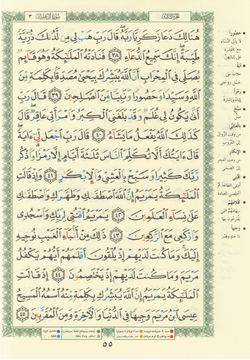 هُنَالِكَ دَعَا زَكَرِيَّا رَبَّهُ قَالَ رَبِّ هَبْ لِي مِن لَّدُنكَ ذُرِّيَّةً
طَيِّبَةً إِنَّكَ سَمِيعُ الدُّعَاءِ ٣٨ فَنَادَتْهُ الْمَلَٰئِكَةُ وَهُوَ قَائِمٌ
يُصَلِّي فِي الْمِحْرَابِ أَنَّ اللَّهَ يُبَشِّرُكَ بِيَحْيَىٰ مُصَدِّقًا بِكَلِمَةٍ مِّنَ
اللَّهِ وَسَيِّدًا وَحَصُورًا وَنَبِيًّا مِّنَ الصَّالِحِينَ ٣٩ قَالَ رَبِّ
أَنَّىٰ يَكُونُ لِي غُلَامٌ وَقَدْ بَلَغَنِيَ الْكِبَرُ وَامْرَأَتِي عَاقِرٌ قَالَ
كَذَٰلِكَ اللَّهُ يَفْعَلُ مَا يَشَاءُ ٤٠ قَالَ رَبِّ اجْعَل لِّي آيَةً
قَالَ آيَتُكَ أَلَّا تُكَلِّمَ النَّاسَ ثَلَاثَةَ أَيَّامٍ إِلَّا رَمْزًا وَاذْكُر
رَّبَّكَ كَثِيرًا وَسَبِّحْ بِالْعَشِيِّ وَالْإِبْكَارِ ٤١ وَإِذْ قَالَتِ
الْمَلَٰئِكَةُ يَا مَرْيَمُ إِنَّ اللَّهَ اصْطَفَاكِ وَطَهَّرَكِ وَاصْطَفَاكِ
عَلَىٰ نِسَاءِ الْعَالَمِينَ ٤٢ يَا مَرْيَمُ اقْنُتِي لِرَبِّكِ وَاسْجُدِي
وَارْكَعِي مَعَ الرَّاكِعِينَ ٤٣ ذَٰلِكَ مِنْ أَنبَاءِ الْغَيْبِ نُوحِيهِ
إِلَيْكَ وَمَا كُنتَ لَدَيْهِمْ إِذْ يُلْقُونَ أَقْلَامَهُمْ أَيُّهُمْ يَكْفُلُ
مَرْيَمَ وَمَا كُنتَ لَدَيْهِمْ إِذْ يَخْتَصِمُونَ ٤٤ إِذْ قَالَتِ
الْمَلَٰئِكَةُ يَا مَرْيَمُ إِنَّ اللَّهَ يُبَشِّرُكِ بِكَلِمَةٍ مِّنْهُ اسْمُهُ الْمَسِيحُ
عِيسَى ابْنُ مَرْيَمَ وَجِيهًا فِي الدُّنْيَا وَالْآخِرَةِ وَمِنَ الْمُقَرَّبِينَ ٤٥
٥٥